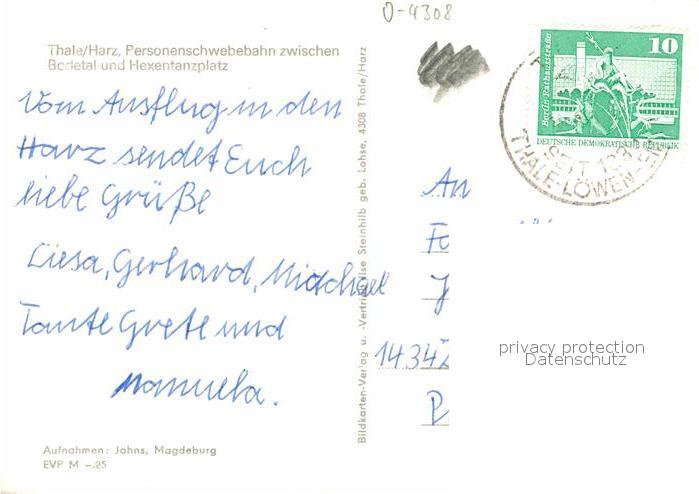 O-4308
Thale/Harz, Personenschwebebahn zwischen
Bodetal und Hexentanzplatz
Vom Ausflug in den
Harz sendet Euch
liebe Grüße
Liesa, Gerhard, Michael
Tante Grete und
Manuela.
Aufnahmen: Jahns, Magdeburg
EVP M -.25
Bildkarten-Verlag u. -Vertrieb Ilse Steinhilb geb. Lohse, 4308 Thale/Harz
10
Berlin-Rathausstraße
DEUTSCHE DEMOKRATISCHE REPUBLIK
SEIT
THALE-LÖWEN-
An
1434
privacy protection
Datenschutz